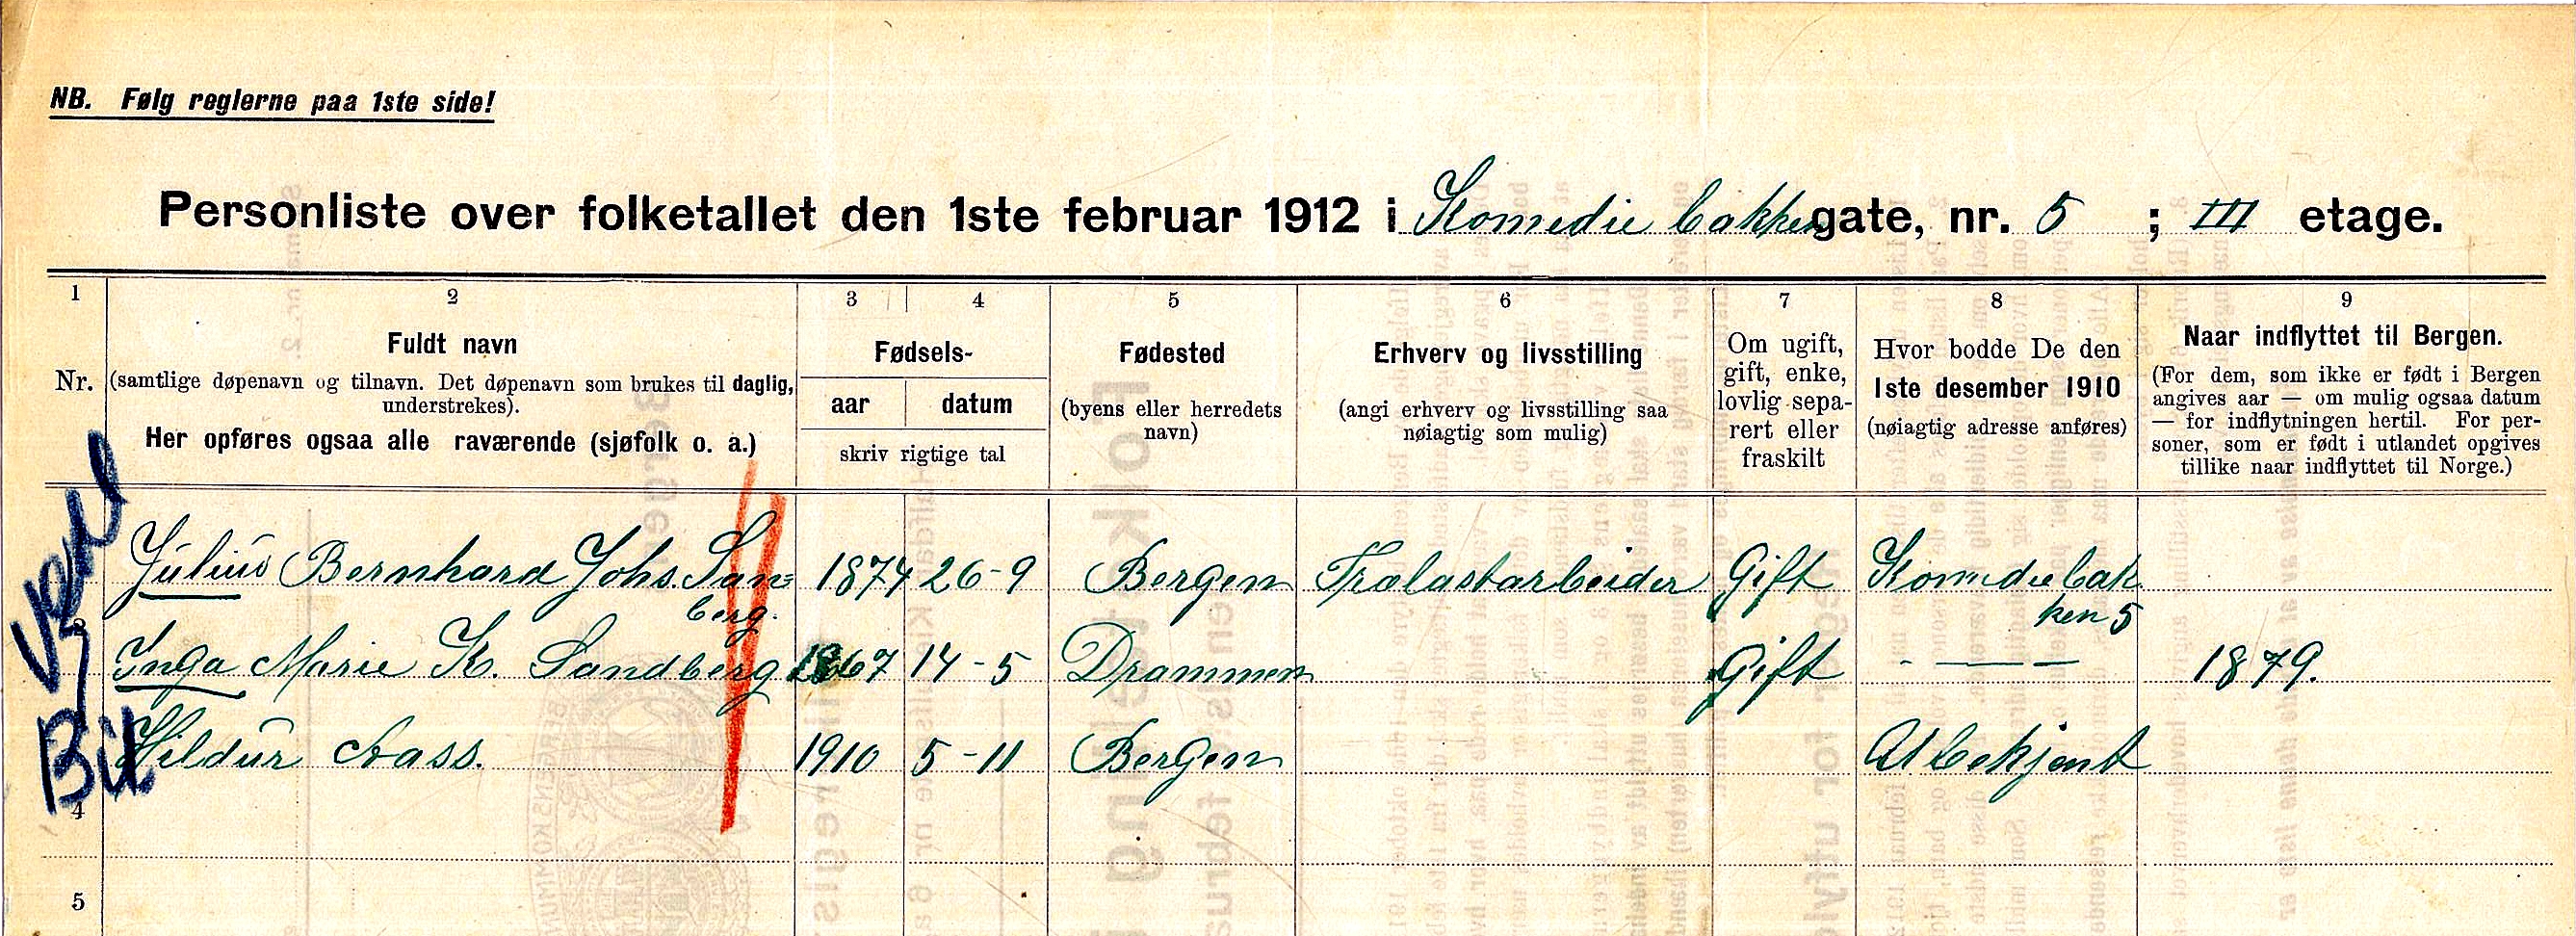 NB. Følg reglerne paa 1ste side!
Personliste over folketallet den 1ste februar 1912 i Komedie bakken gate, nr. 5 ; III etage.
1 2 3 4 5 6 7 8 9
Nr.
Fuldt navn
(samtlige døpenavn og tilnavn. Det døpenavn som brukes til daglig,
understrekes).
Her opføres ogsaa alle raværende (sjøfolk o. a.)
Fødsels-
aar datum
skriv rigtige tal
Fødested
(byens eller herredets
navn)
Erhverv og livsstilling
(angi erhverv og livsstilling saa
nøiagtig som mulig)
Om ugift,
gift, enke,
lovlig sepa-
rert eller
fraskilt
Hvor bodde De den
1ste desember 1910
(nøiagtig adresse anføres)
Naar indflyttet til Bergen.
(For dem, som ikke er født i Bergen
angives aar — om mulig ogsaa datum
— for indflytningen hertil. For per-
soner, som er født i utlandet opgives
tillike naar indflyttet til Norge.)
Julius Bernhard Johs. San= 1874 26-9 Bergen Trælastarbeider Gift Komediebak
berg. ken 5
Inga Marie K. Sandberg 1867 14-5 Drammen Gift - — — 1879.
Hildur Aass. 1910 5-11 Bergen Ubekjent
4
5